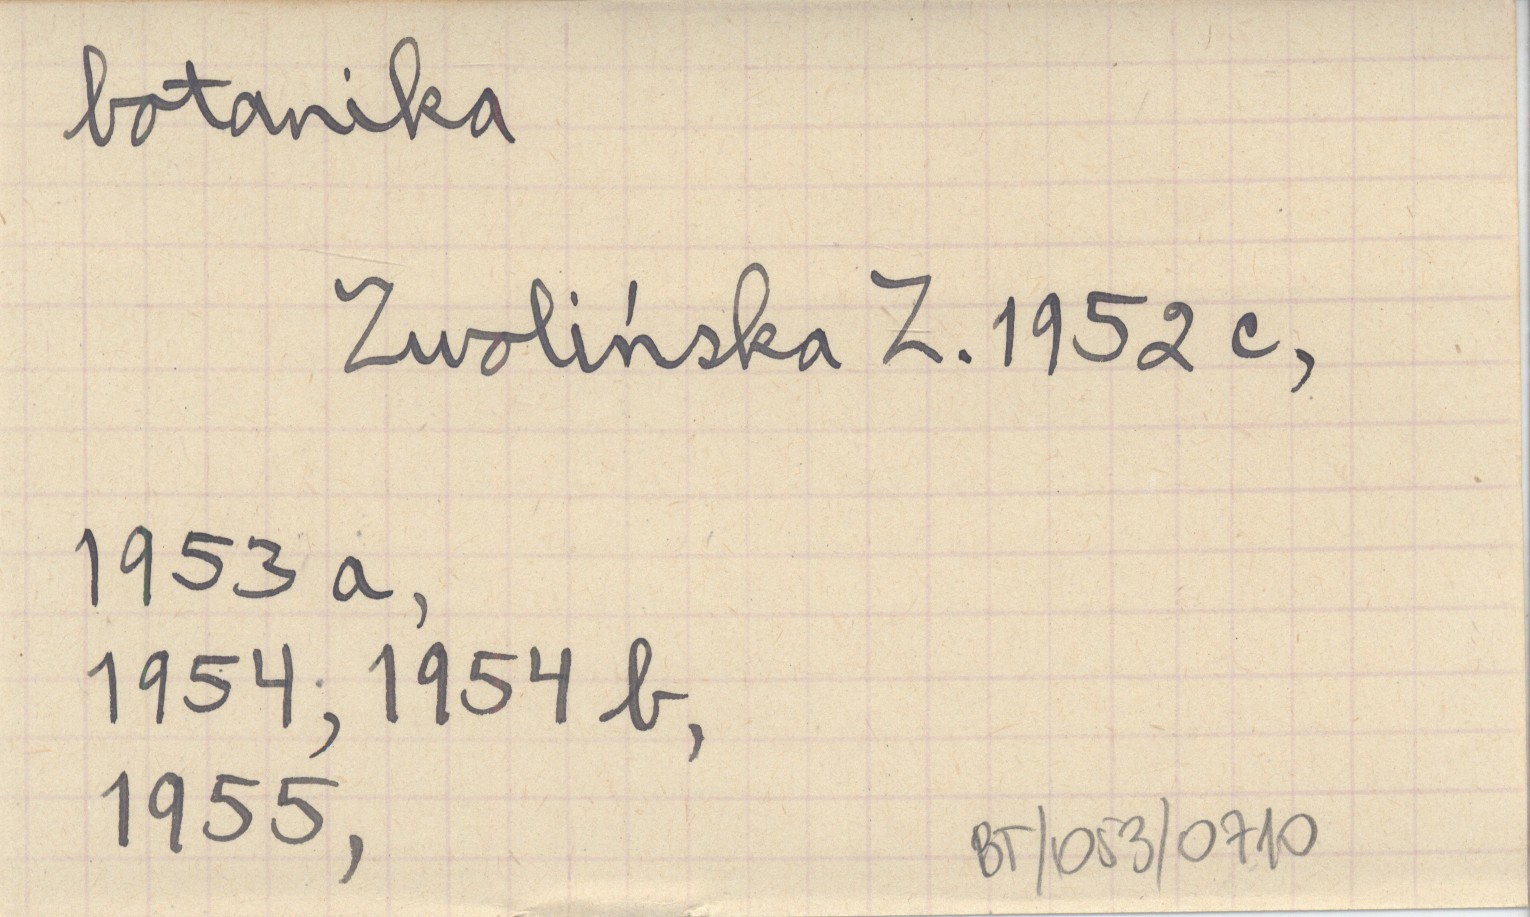 botanika
Zwolińska Z. 1952 c,
1953 a,
1954; 1954 b,
1955,
BT/053/0710